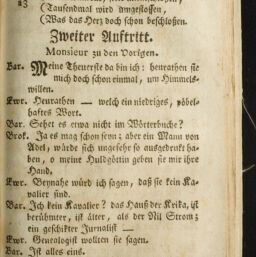 (Tausendmal wird angestossen,
(Was das Herz doch schon beschloßen.
Zweiter Auftritt.
Monsieur zu den Vorigen.
Bar. Meine Theuerste da bin ich: heurathen sie
mich doch schon einmal, um Himmels-
willen.
Ewr. Heurathen — welch ein niedriges, pöbel-
haftes Wort.
Bar. Sehet es etwa nicht im Wörterbuche?
Brok. Ja es mag schon seyn; aber ein Mann von
Adel, würde sich ungefehr so ausgedrukt ha-
ben, o meine Huldgöttin geben sie mir ihre
Hand.
Ewr. Beynahe würd ich sagen, daß sie kein Ka-
valier sind.
Bar. Ich kein Kavalier? das Hauß der Krika, ist
berühmter, ist älter, als der Nil Strom;
ein geschikter Jurnalist —
Ewr. Genealogist wollten sie sagen.
Bar. Ist alles eins.